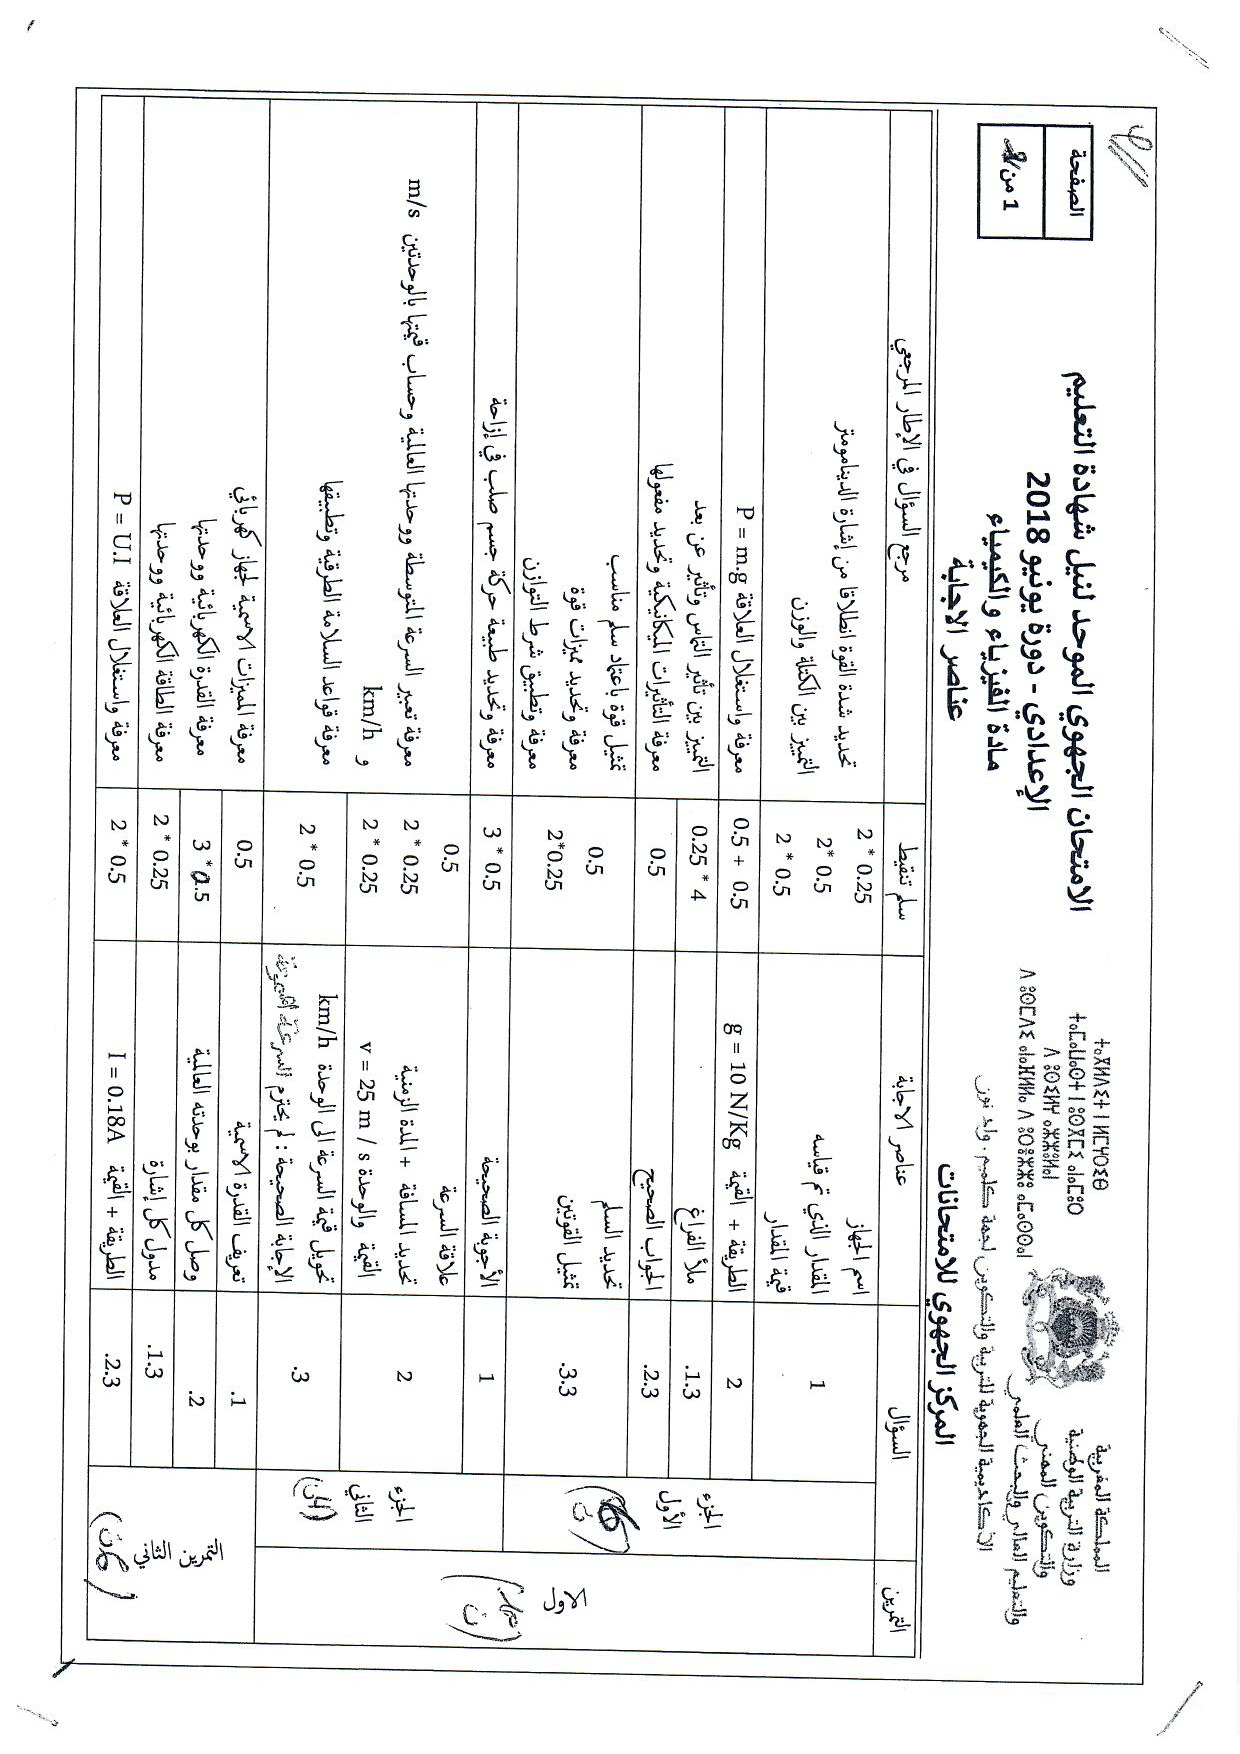 المملكة المغربية
وزارة التربية الوطنية
والتكوين المهني
والتعليم العالي والبحث العلمي
الأكاديمية الجهوية للتربية والتكوين لجهة كلميم، واد نون
ⵜⴰⴳⵍⴷⵉⵜ ⵏ ⵍⵎⵖⵔⵉⴱ
المركز الجهوي للامتحانات
الامتحان الجهوي الموحد لنيل شهادة التعليم
الإعدادي - دورة يونيو 2018
مادة الفيزياء والكيمياء
عناصر الاجابة
الصفحة
1 من
التمرين السؤال عناصر الاجابة سلم تنقيط مرجع السؤال في الإطار المرجعي
الاول
الجزء
الأول
1 اسم الجهاز 2 * 0.25 تحديد شدة القوة انطلاقا من إشارة الدينامومتر
المقدار الذي تم قياسه 2* 0.5
قيمة المقدار 2 * 0.5 التمييز بين الكتلة والوزن
2 الطريقة + القيمة g = 10 N/Kg 0.5 + 0.5 معرفة واستغلال العلاقة P = m.g
.1.3 ملأ الفراغ 0.25 * 4 التمييز بين تأثير التماس وتأثير عن بعد
.2.3 الجواب الصحيح 0.5 معرفة التأثيرات الميكانيكية وتحديد مفعولها
.3.3 تحديد السلم 0.5 تمثيل قوة باعتماد سلم مناسب
تمثيل القوتين 2*0.25 معرفة وتحديد مميزات قوة
معرفة وتطبيق شرط التوازن
الجزء
الثاني
1 الأجوبة الصحيحة 3 * 0.5 معرفة وتحديد طبيعة حركة جسم صلب في إزاحة
2 علاقة السرعة 0.5
تحديد المسافة + المدة الزمنية 2 * 0.25 معرفة تعبير السرعة المتوسطة ووحدتها العالمية وحساب قيمتها بالوحدتين m/s
القيمة والوحدة v = 25 m / s 2 * 0.25 و km/h
.3 تحويل قيمة السرعة الى الوحدة km/h 2 * 0.5 معرفة قواعد السلامة الطرقية وتطبيقها
الإجابة الصحيحة : لم يحترم السرعة
التمرين الثاني
.1 تعريف القدرة الاسمية 0.5 معرفة المميزات الاسمية لجهاز كهربائي
.2 وصل كل مقدار بوحدته العالمية 3 * 0.5 معرفة القدرة الكهربائية ووحدتها
.1.3 مدلول كل إشارة 2 * 0.25 معرفة الطاقة الكهربائية ووحدتها
.2.3 الطريقة + القيمة I = 0.18A 2 * 0.5 معرفة واستغلال العلاقة P = U.I